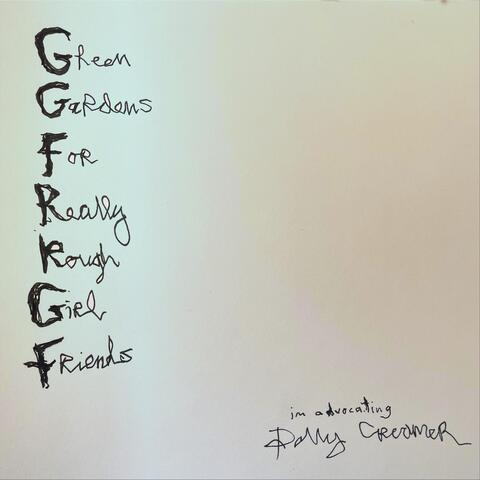 Green
Gardens
For
Really
Rough
Girl
Friends
im advocating
Dolly Creamer